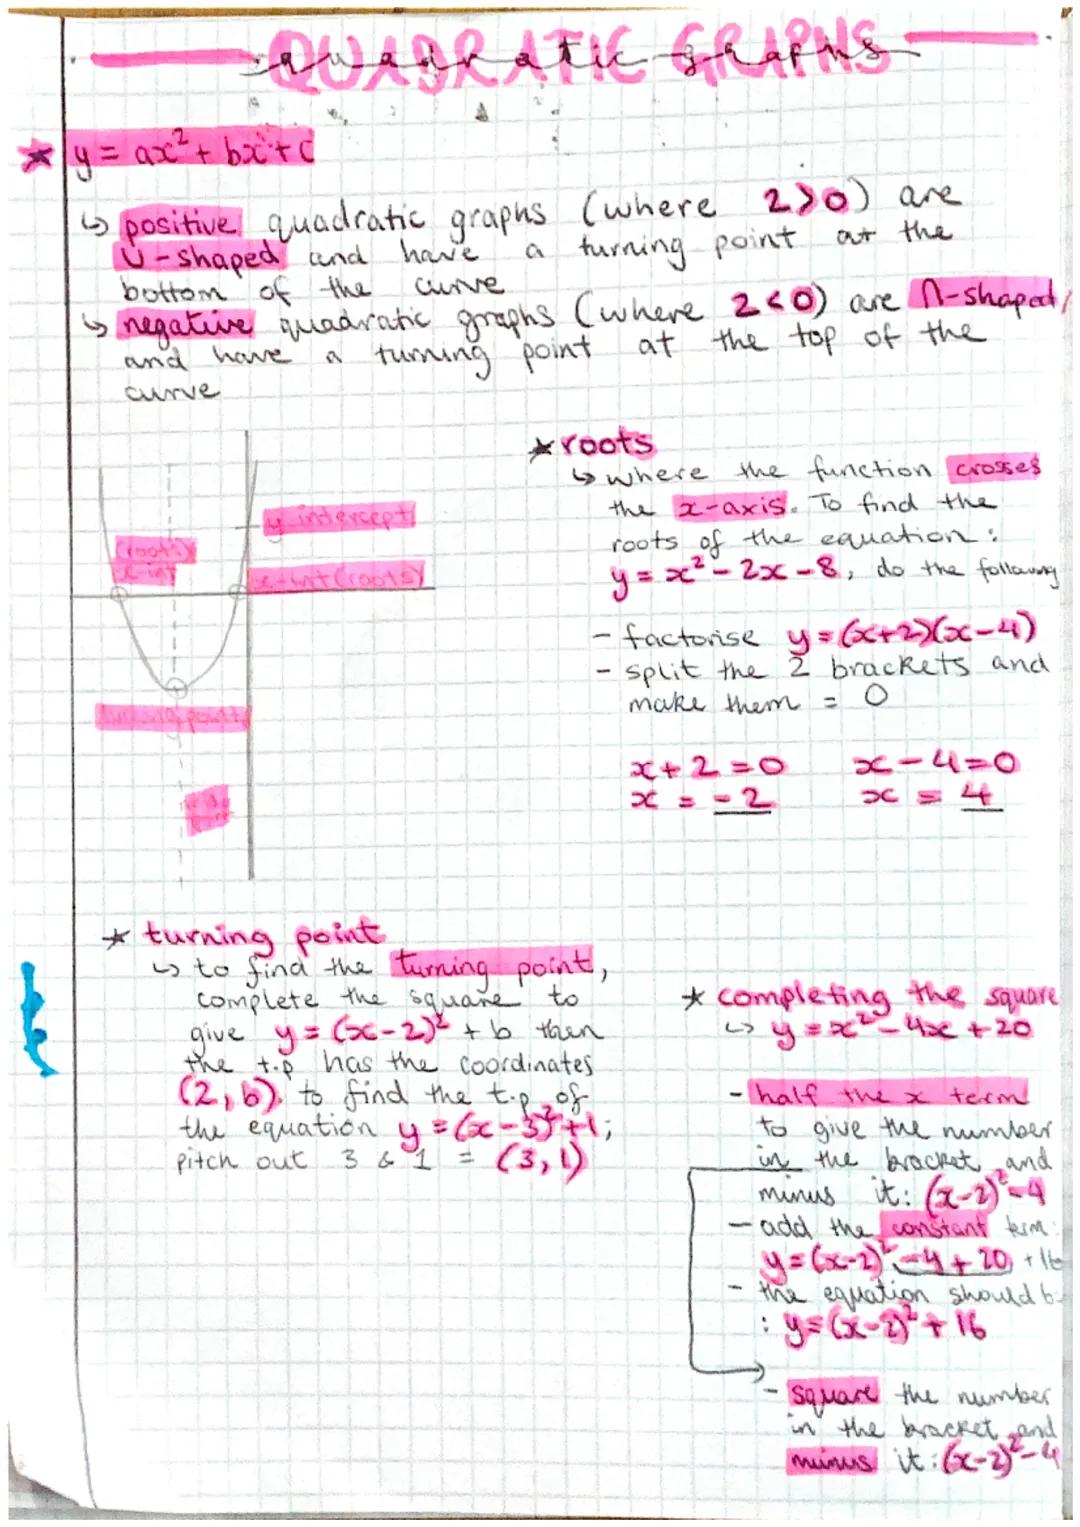 QUADRATIC GRAPHS
quadratic graphs
* y = ax² + bx + c
↳ positive quadratic graphs (where 2>0) are
U-shaped and have a turning point at the
bottom of the curve
↳ negative quadratic graphs (where 2<0) are ∩-shaped,
and have a turning point at the top of the
curve
y intercept
(roots)
x-int
x-int (roots)
turning point
* roots
↳ where the function crosses
the x-axis. To find the
roots of the equation :
y = x² - 2x - 8, do the following
- factorise y = (x+2)(x-4)
- split the 2 brackets and
make them = 0
x + 2 = 0 x - 4 = 0
x = -2 x = 4
* turning point
↳ to find the turning point,
complete the square to
give y = (x-2)² + b then
the t.p has the coordinates
(2, b). to find the t.p of
the equation y = (x-3)² + 1;
pitch out 3 & 1 = (3, 1)
* completing the square
↳ y = x² - 4x + 20
- half the x term
to give the number
in the bracket and
minus it: (x-2)² - 4
- add the constant term:
y = (x-2)² - 4 + 20 + 16
- the equation should b
: y = (x-2)² + 16
- square the number
in the bracket and
minus it: (x-2)² - 4